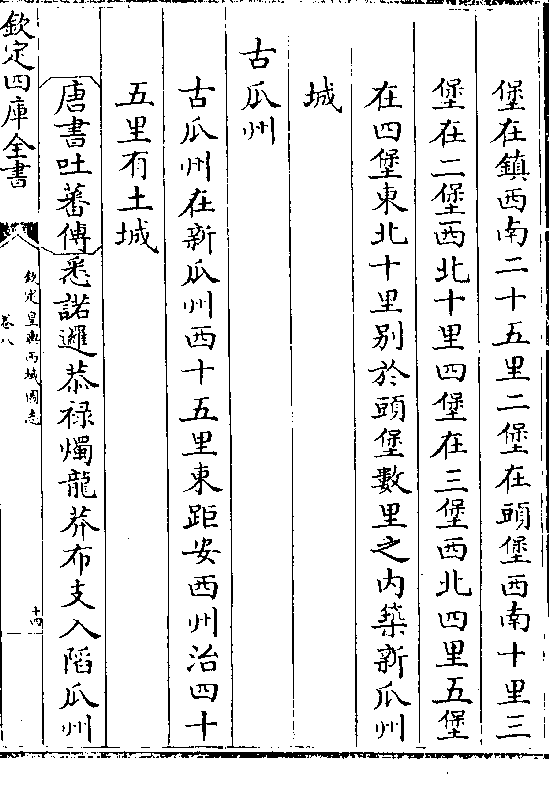 堡在鎮西南二十五里二堡在頭堡西南十里三
堡在二堡西北十里四堡在三堡西北四里五堡
在四堡東北十里别於頭堡數里之内築新瓜州
城
古瓜州
古瓜州在新瓜州西十五里東距安西州治四十
五里有土城
唐書吐蕃傳悉諾邏恭禄燭龍莽布支入陷瓜州
欽定四庫全書
欽定皇輿西域圖志
卷八
十四